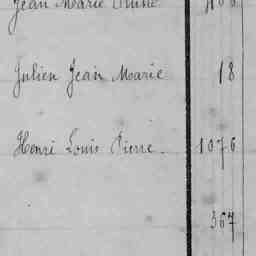 Jean Marie
Julien Jean Marie 18
Henri Louis Pierre 1076
367